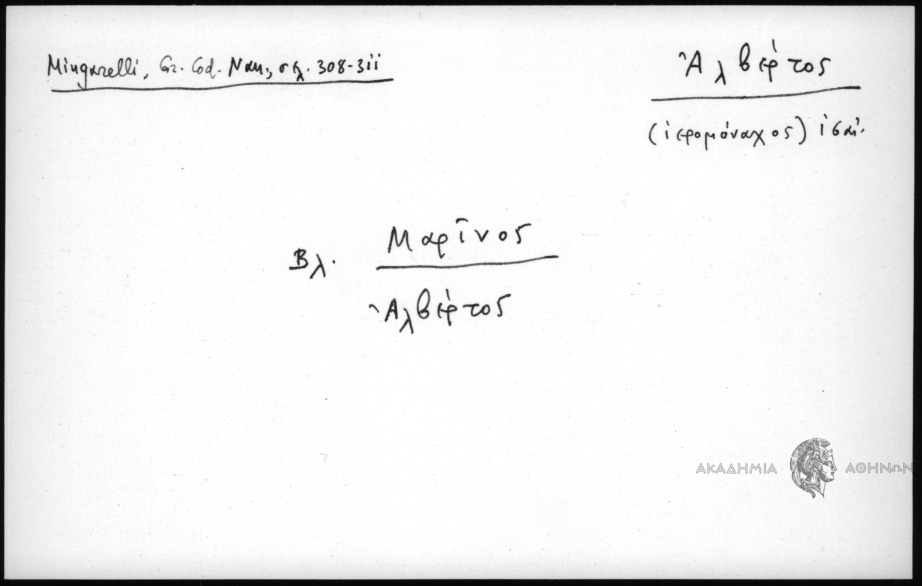 Mingarelli, Gr. Cod. Nan., σελ. 308-311
Ἀλβέρτος
(ἱερομόναχος)
Βλ. Μαρῖνος
Ἀλβέρτος
ΑΚΑΔΗΜΙΑ ΑΘΗΝΩΝ